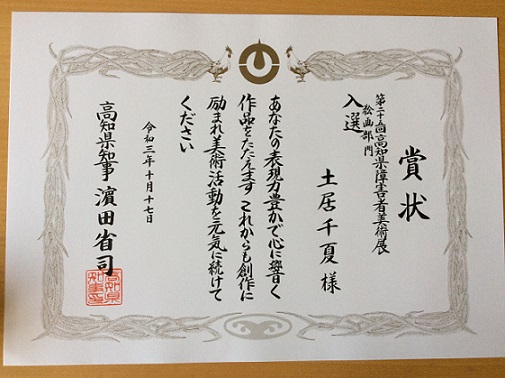 賞状
第二十五回高知県障害者美術展
絵画部門
入選
土居千夏様
あなたの表現力豊かで心に響く
作品をたたえます これからも創作に
励まれ美術活動を元気に続けて
ください
令和三年十月十七日
高知県知事 濵田省司